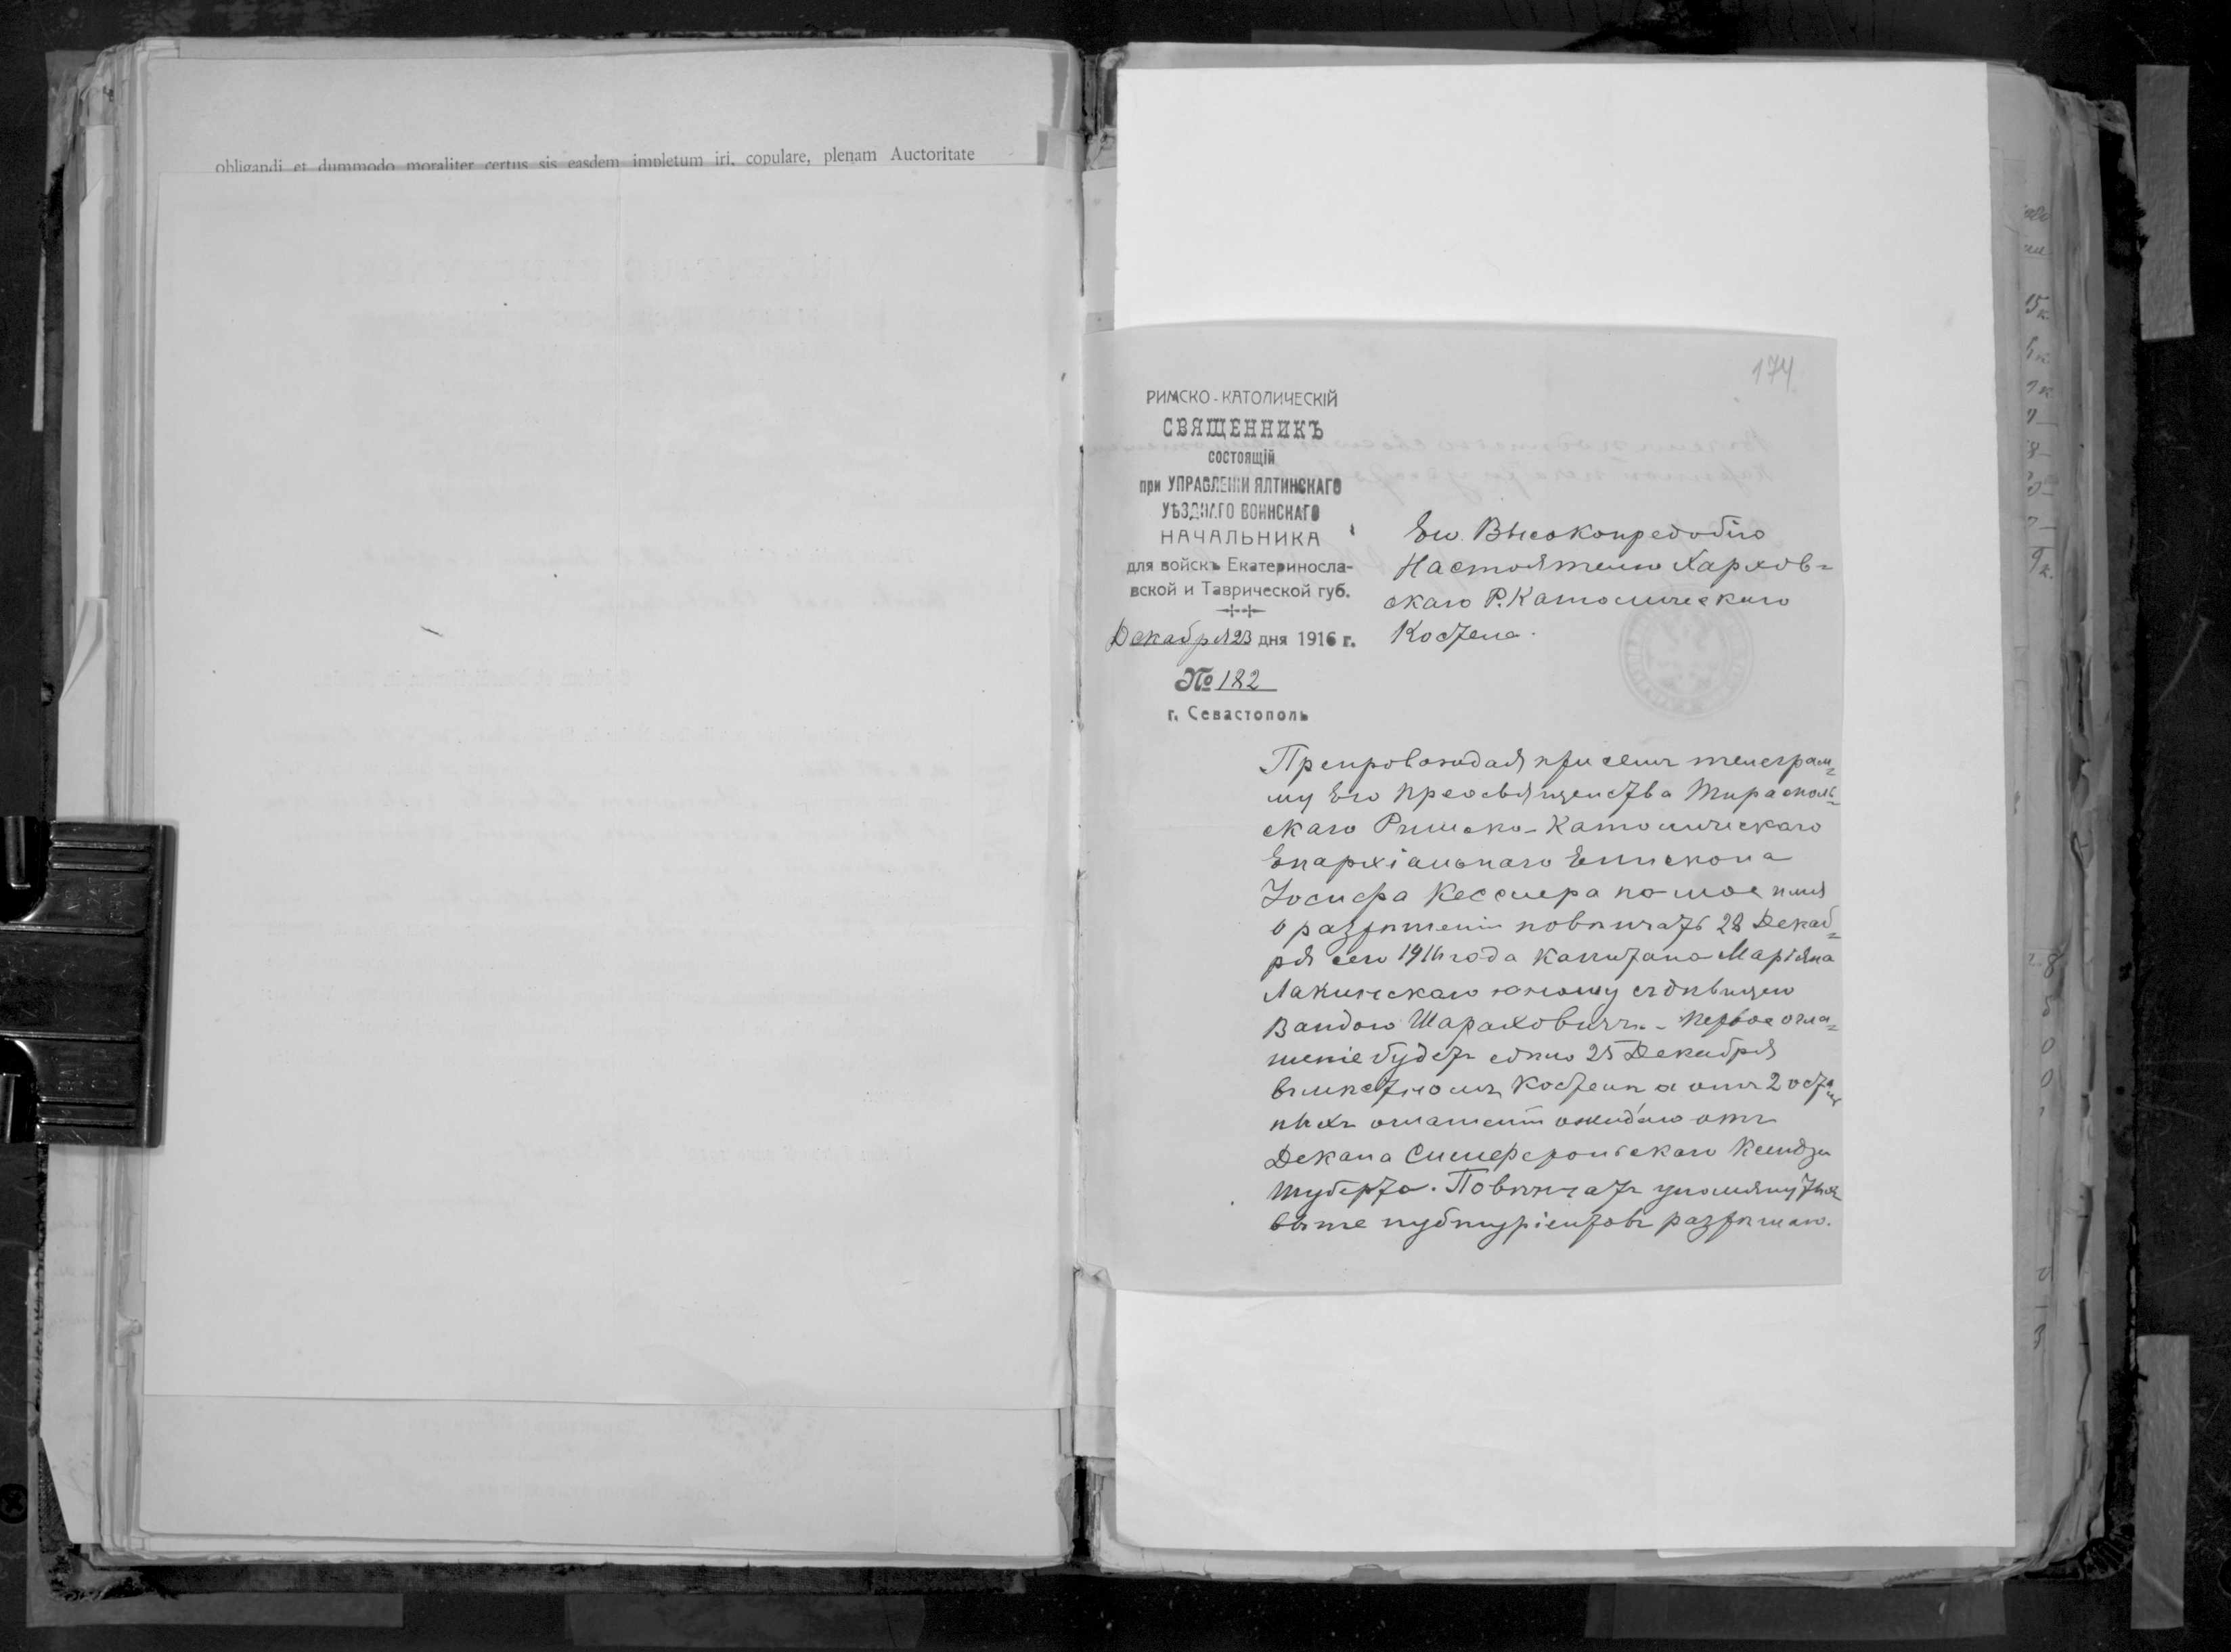 obligandi et dummodo moraliter certus sis easdem impletum iri, copulare, plenam Auctoritate
174
РИМСКО-КАТОЛИЧЕСКІЙ
СВЯЩЕННИКЪ
состоящій
при УПРАВЛЕНІИ ЯЛТИНСКАГО
УѢЗДНАГО ВОИНСКАГО
НАЧАЛЬНИКА
для войскъ Екатериносла-
вской и Таврической губ.
Декабря 23 дня 1916 г.
№ 182
г. Севастополь
Его Высокопредобію
Настоятелю Харков-
скаго Р. Католическаго
Костела.
Препровождая при семъ телеграм=
му Его Преосвященства Тираспол=
скаго Римско-Католическаго
Епархіальнаго Епископа
Іосифа Кесслера на мое имя
о разрѣшеніи повѣнчать 28 Декаб=
ря сего 1916 года Капитана Маріяна
съ дѣвицею
Вандою Шараховичъ. - Первое огла=
шеніе будетъ 25 Декабря
въ мѣстномъ Костелѣ а 2 оста
ныхъ оглашеніи ожидаю отъ
Декана Симферопольскаго Ксендза
Шуберта. Повѣнчать упомянутыхъ
выше нубтуріентовъ разрѣшаю.